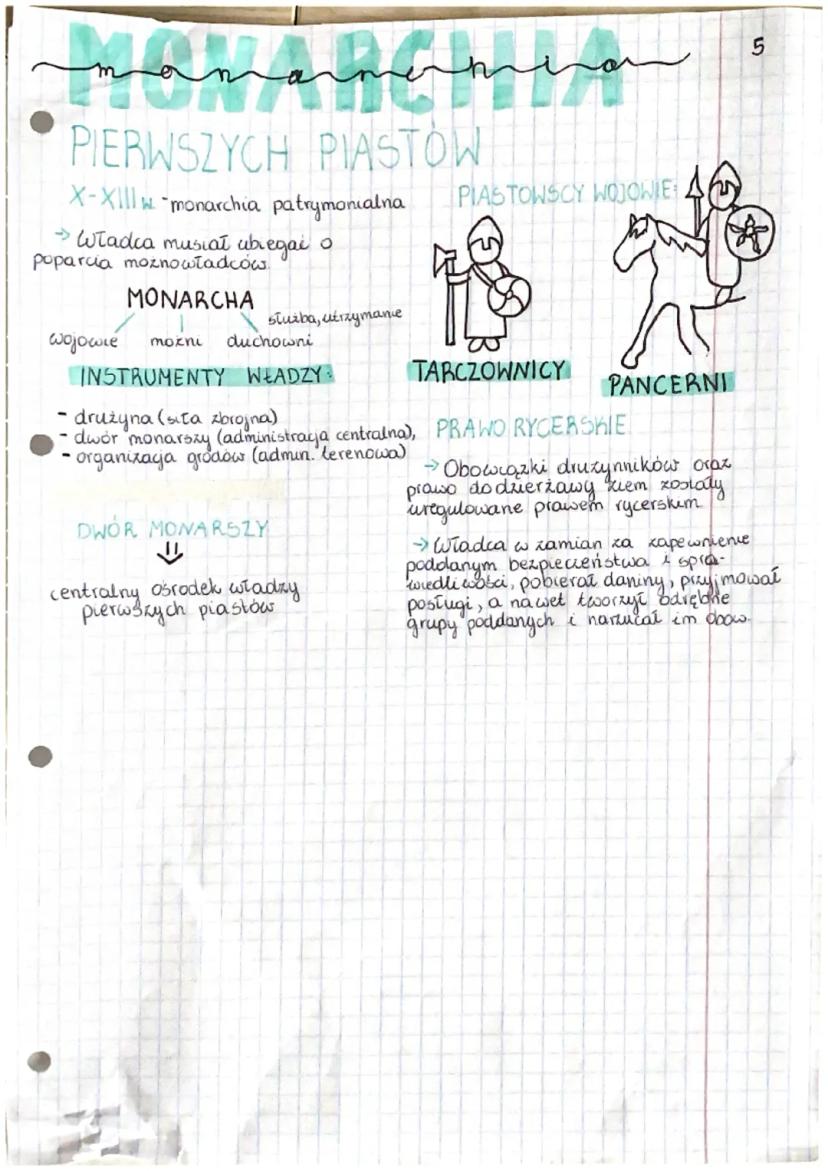 5
MONARCHIA
monarchia
PIERWSZYCH PIASTÓW
X-XIII w - monarchia patrymonialna
→ Władca musiał ubiegać o
poparcia możnowładców.
MONARCHA
służba, utrzymanie
wojowie możni duchowni
INSTRUMENTY WŁADZY:
- drużyna (siła zbrojna)
- dwór monarszy (administracja centralna),
- organizacja grodów (admin. terenowa)
DWÓR MONARSZY
⇓
centralny ośrodek władzy
pierwszych piastów
PIASTOWSCY WOJOWIE:
TARCZOWNICY
PANCERNI
PRAWO RYCERSKIE
→ Obowiązki drużynników oraz
prawo do dzierżawy ziem zostały
uregulowane prawem rycerskim
→ Władca w zamian za zapewnienie
poddanym bezpieczeństwa i spra-
wiedliwości, pobierał daniny, przyjmował
posługi, a nawet tworzył odrębne
grupy poddanych i narzucał im obow.